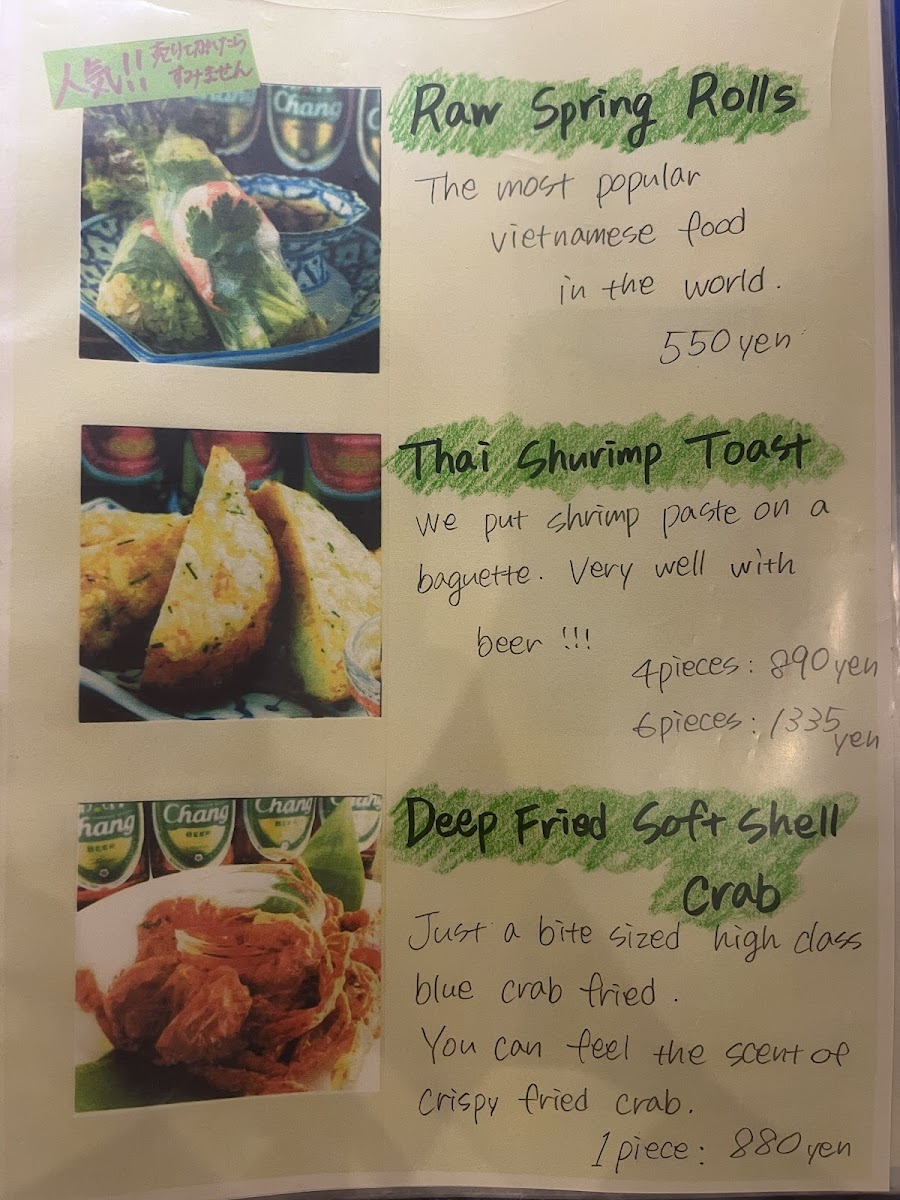 人気!! 売り切れたら
すみません
Chang
Raw Spring Rolls
The most popular
vietnamese food
in the world.
550yen
Thai Shurimp Toast
We put shrimp paste on a
baguette. Very well with
beer !!!
4pieces: 890yen
6pieces: 1335
yen
Chang
BEER
Chang
BEER
Chang
BEER
Chang
Deep Fried Soft Shell
Crab
Just a bite sized high class
blue crab fried.
You can feel the scent of
crispy fried crab.
1piece: 880yen